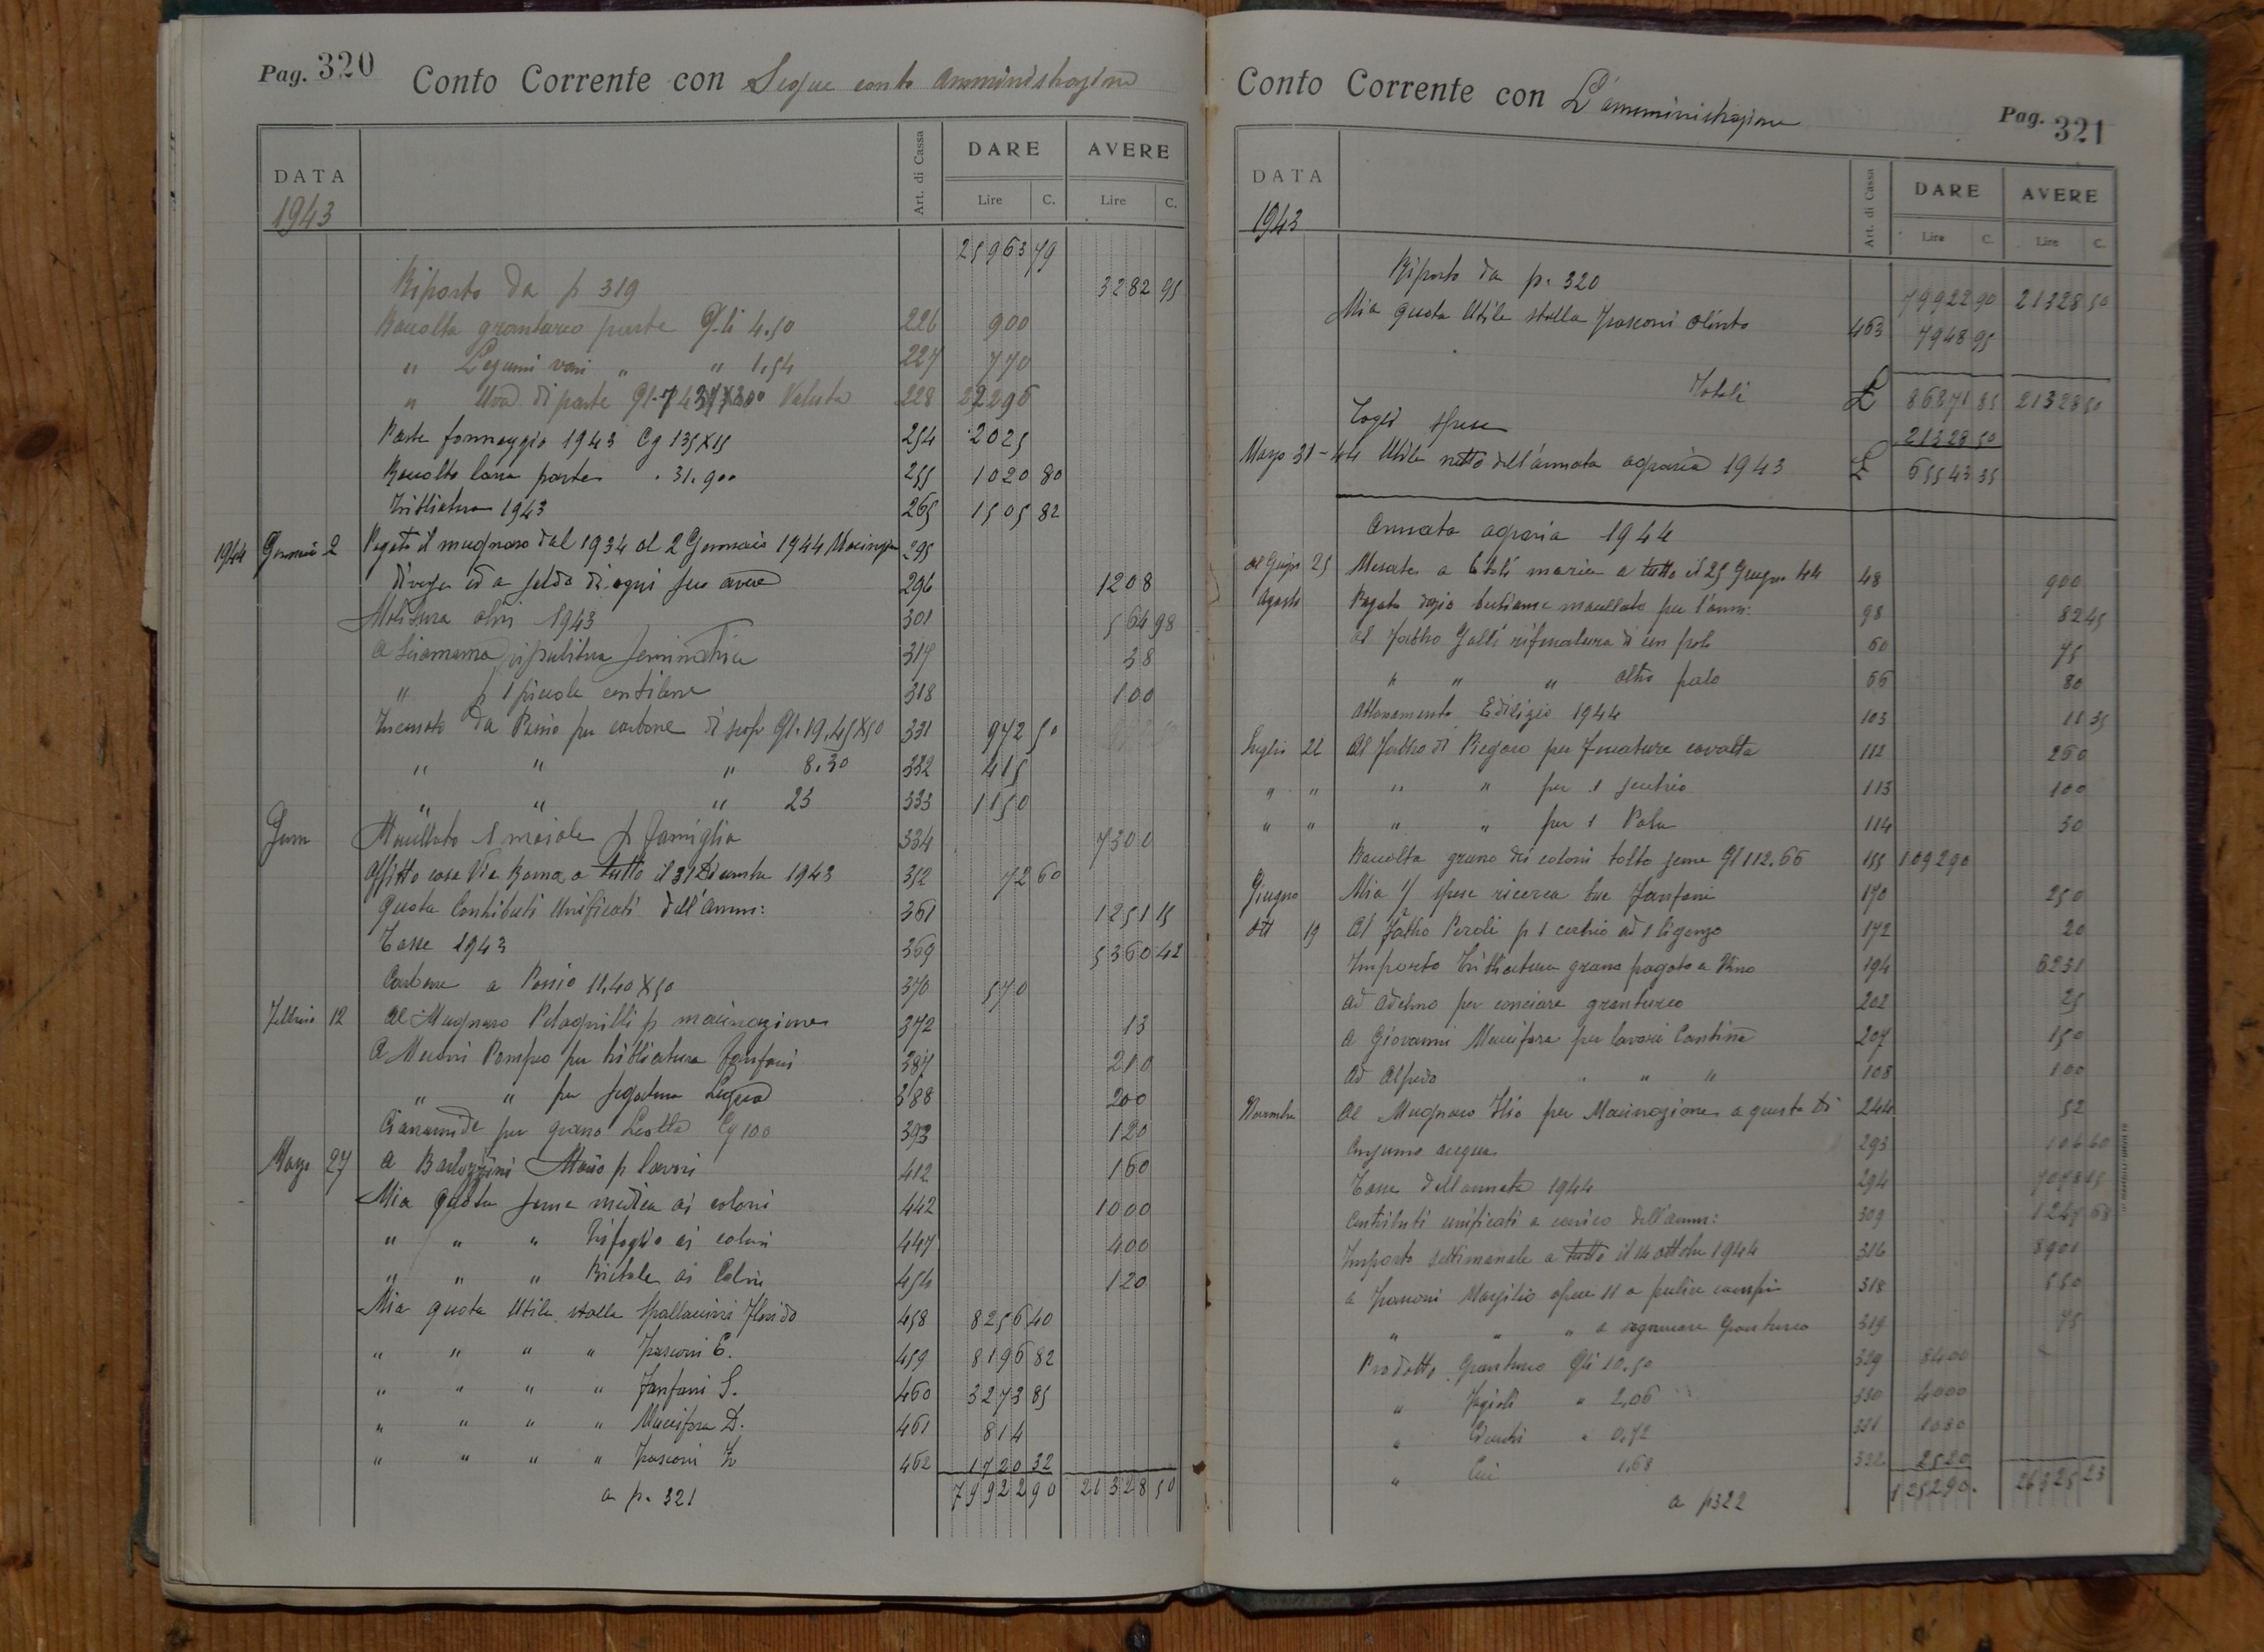 Pag. 320 Conto Corrente con Segue conto Amministrazione
DATA Art. di Cassa DARE AVERE
1943 Lire C. Lire C.
25963 79
Riporto da p 319 3282 95
Raccolta granturco parte Q.li 4.50 226 900
" Legumi vari " " 1.54 227 770
" Uva di parte Ql. 300 Valuta 228 22296
Parte formaggio 1943 Cg 135X15 254 2025
Raccolta lana parte . 31.900 255 1020 80
Trebbiatura 1943 265 1505 82
1944 Gennaio 2 Pagato il mugnaio dal 1934 al 2 Gennaio 1944 295
ed a saldo di ogni suo avere 296 1208
Molitura olivi 1943 301 564 98
a ripulitura seminatrice 317 38
" p 1 piccola 318 100
Incassato da per carbone di Ql. 19.45X50 331 972 50
" " " 8.30 332 415
" " " 23 333 1150
Genn Macellato 1 maiale p famiglia 334 7300
Affitto casa Via Roma a tutto il 31 Dicembre 1943 352 72 60
Quota Contributi Unificati dell'Amm: 361 1251 15
Tasse 1943 369 5360 42
Carbone a 11.40X50 370 570
Febbraio 12 Al Mugnaio p macinazione 372 13
A Pompeo per trebbiatura Fanfani 387 210
" " per segatura Legna 388 200
per grano Cg 100 393 120
Marzo 27 A Bartozzini Mario p lavori 412 160
Mia quota seme medica ai coloni 442 1000
" " " Trifoglio ai coloni 447 400
" " " ai Coloni 454 120
Mia quota Utile stalla Spallaccini Florido 458 8256 40
" " " " Frasconi E. 459 8196 82
" " " " Fanfani S. 460 3273 85
" " " " Muccifora D. 461 814
" " " " Frasconi 462 1720 32
a p. 321 79922 90 21328 50
Conto Corrente con L'amministrazione Pag. 321
DATA Art. di Cassa DARE AVERE
1943 Lire C. Lire C.
Riporto da p. 320 79922 90 21328 50
Mia quota Utile stalla Frasconi Olinto 463 7948 95
Totali £ 86871 85 21328 50
Togli spese 21328 50
Marzo 31-44 Utile netto dell'annata agraria 1943 £ 65543 35
Annata agraria 1944
al Giugno 25 Mesate a maria a tutto il 25 Giugno 44 48 900
Agosto Pagato dazio bestiame macellato per l'amm: 98 82 45
Al Fabbro Galli di un palo 60 75
" " " altro palo 66 80
103 11 35
Luglio 22 Al Fabbro di Piegaro per ferratura cavalla 112 260
" " " " per 1 secchio 113 100
" " " " per 1 Pala 114 30
Raccolta grano dei coloni tolto seme Ql 112.66 155 109290
Giugno Mia ½ spese ricerca bue Fanfani 170 250
Ott 19 Al Fabbro Peroli p 1 cerchio ed 1 172 20
Importo Trebbiatura grano pagato a 194 6231
Ad Adelmo per conciare granturco 202 25
A Giovanni Muccifora per lavori Cantina 207 150
Ad Alfredo " " " 108 100
Novembre Al Mugnaio per Macinazione a questo dì 244 52
Consumo acqua 293 106 60
Tasse dell'annata 1944 294
Contributi unificati a carico dell'amm: 309 1247 68
Importo settimanale a tutto il 14 ottobre 1944 316 8901
a Frasconi Marsilio opere 11 a pulire campi 318 550
" " " a granturco 319 75
Prodotto Granturco Qli 10.50 329 8400
" Fagioli " 2,06 330 4000
" " 0.72 331 1080
" Ceci 1,68 332 2520
a p322 125290. 26325 23